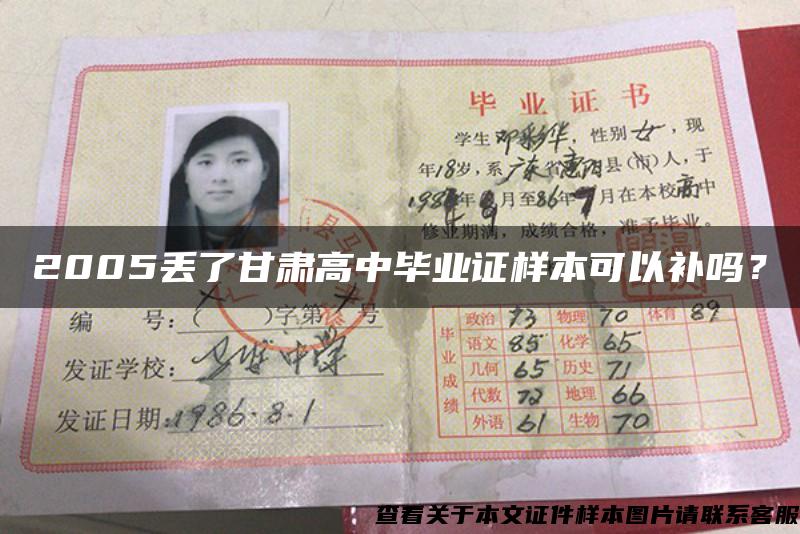 毕业证书
学生邓彩华，性别女，现
年18岁，系广东省惠阳县(市)人，于
198 年9月至86年7月在本校高中
修业期满，成绩合格，准予毕业。
2005丢了甘肃高中毕业证样本可以补吗？
编 号：( )字第 号
发证学校： 中学
发证日期：1986.8.1
毕业成绩
政治 73 物理 70 体育 89
语文 85 化学 65
几何 65 历史 71
代数 72 地理 66
外语 61 生物 70
查看关于本文证件样本图片请联系客服